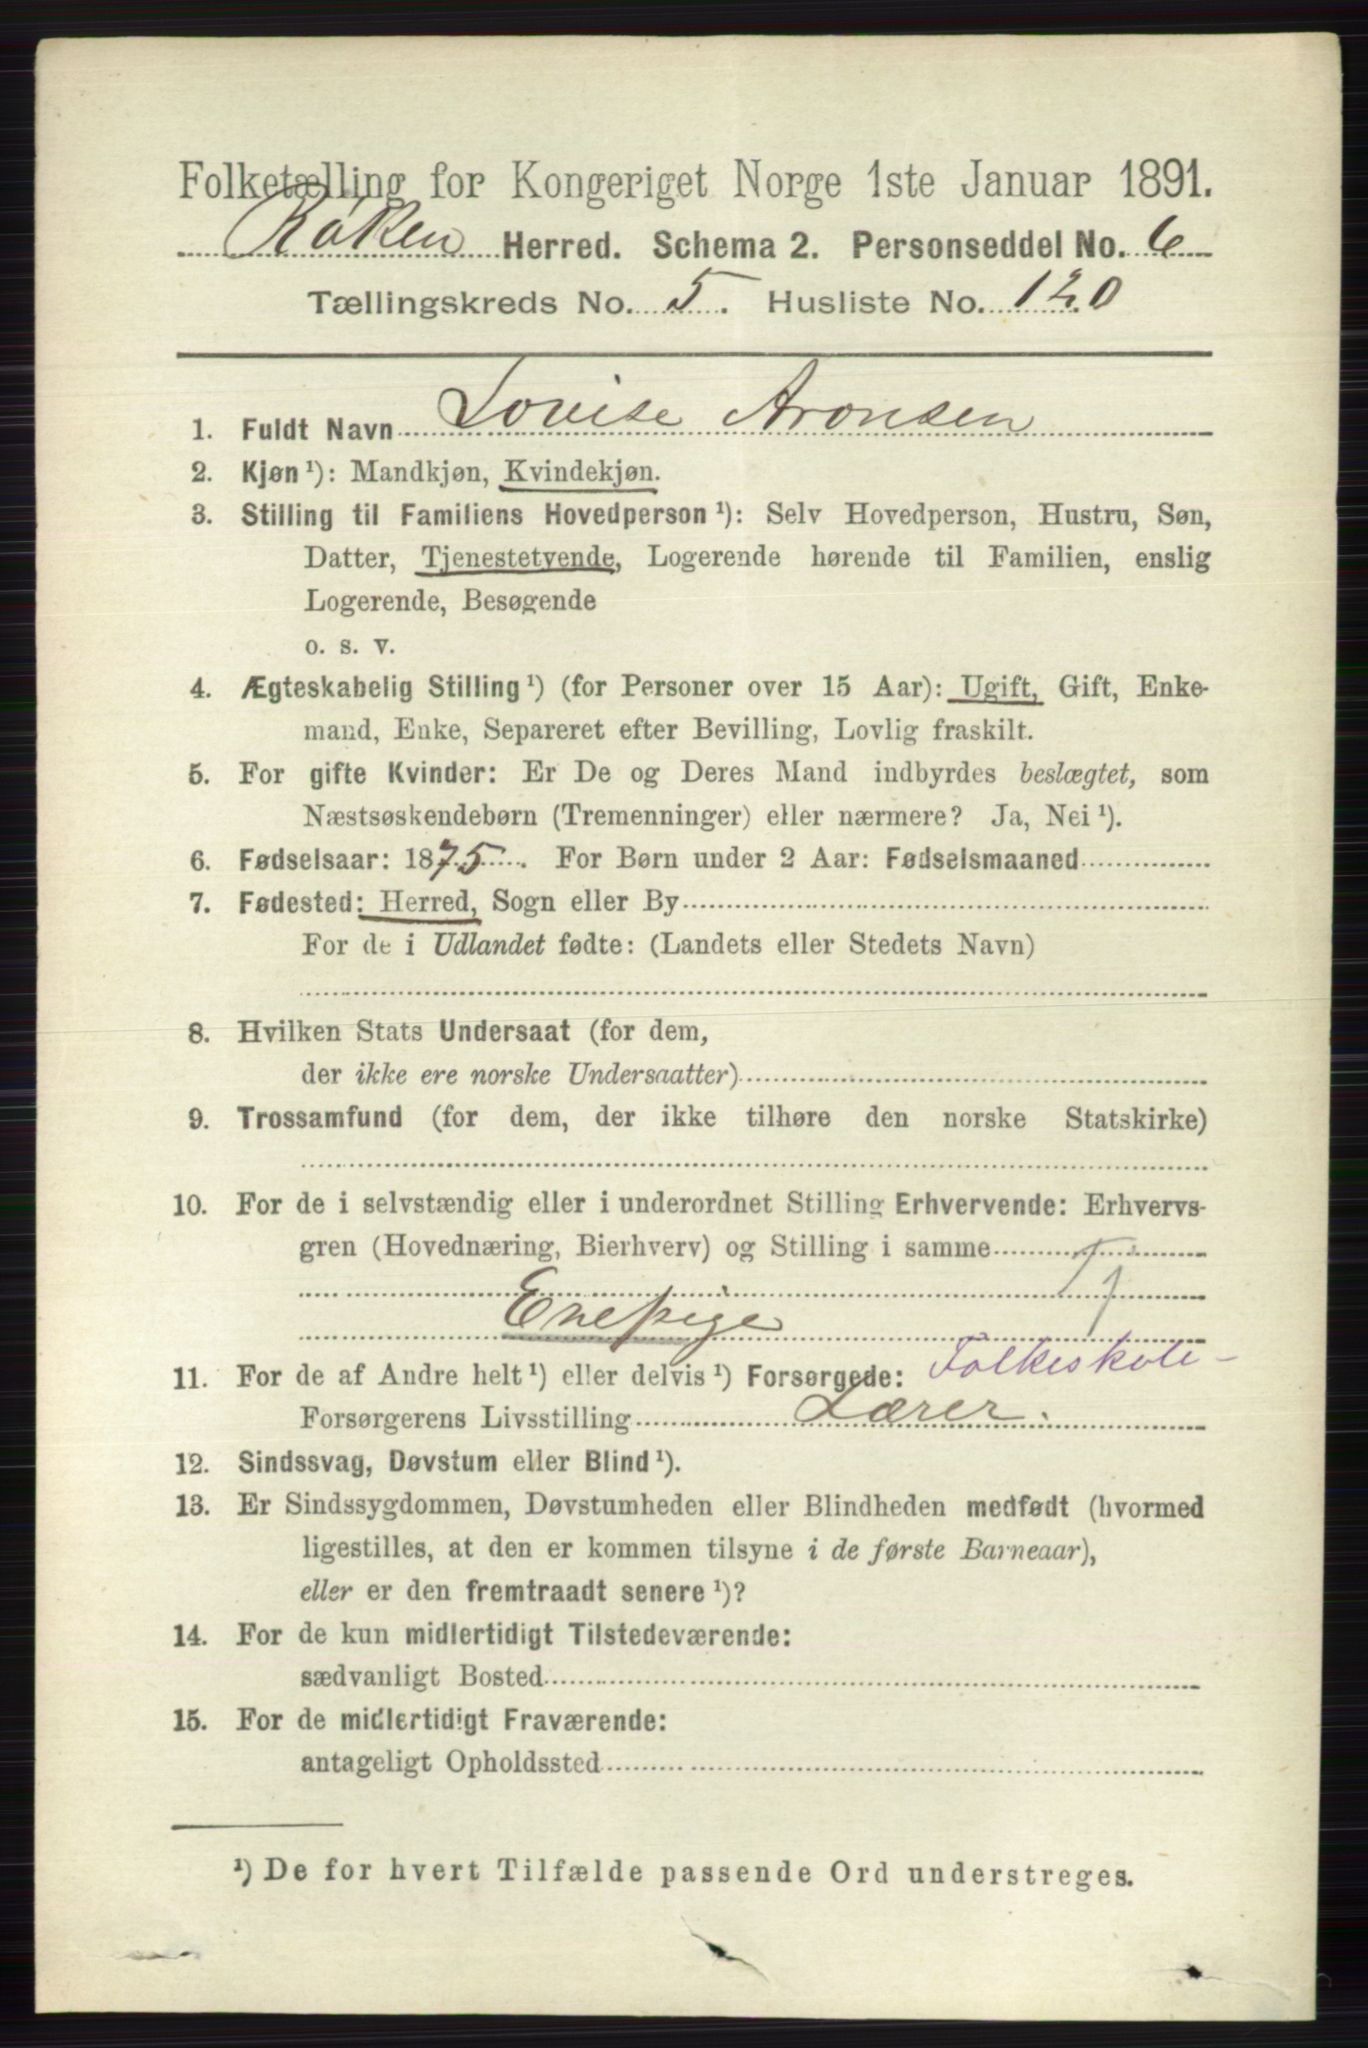 Folketælling for Kongeriget Norge 1ste Januar 1891.
Røken Herred. Schema 2. Personseddel No. 6
Tællingskreds No. 5. Husliste No. 120
1. Fuldt Navn Lovise Aronsen
2. Kjøn ¹): Mandkjøn, Kvindekjøn.
3. Stilling til Familiens Hovedperson ¹): Selv Hovedperson, Hustru, Søn,
Datter, Tjenestetyende, Logerende hørende til Familien, enslig
Logerende, Besøgende
o. s. v.
4. Ægteskabelig Stilling ¹) (for Personer over 15 Aar): Ugift, Gift, Enke-
mand, Enke, Separeret efter Bevilling, Lovlig fraskilt.
5. For gifte Kvinder: Er De og Deres Mand indbyrdes beslægtet, som
Næstsøskendebørn (Tremenninger) eller nærmere? Ja, Nei ¹).
6. Fødselsaar: 1875. For Børn under 2 Aar: Fødselsmaaned
7. Fødested: Herred, Sogn eller By
For de i Udlandet fødte: (Landets eller Stedets Navn)
8. Hvilken Stats Undersaat (for dem,
der ikke ere norske Undersaatter)
9. Trossamfund (for dem, der ikke tilhøre den norske Statskirke)
10. For de i selvstændig eller i underordnet Stilling Erhvervende: Erhvervs-
gren (Hovednæring, Bierhverv) og Stilling i samme
Enepige Tj
11. For de af Andre helt ¹) eller delvis ¹) Forsørgede: Folkeskole-
Forsørgerens Livsstilling Lærer.
12. Sindssvag, Døvstum eller Blind ¹).
13. Er Sindssygdommen, Døvstumheden eller Blindheden medfødt (hvormed
ligestilles, at den er kommen tilsyne i de første Barneaar),
eller er den fremtraadt senere ¹)?
14. For de kun midlertidigt Tilstedeværende:
sædvanligt Bosted
15. For de midlertidigt Fraværende:
antageligt Opholdssted
¹) De for hvert Tilfælde passende Ord understreges.